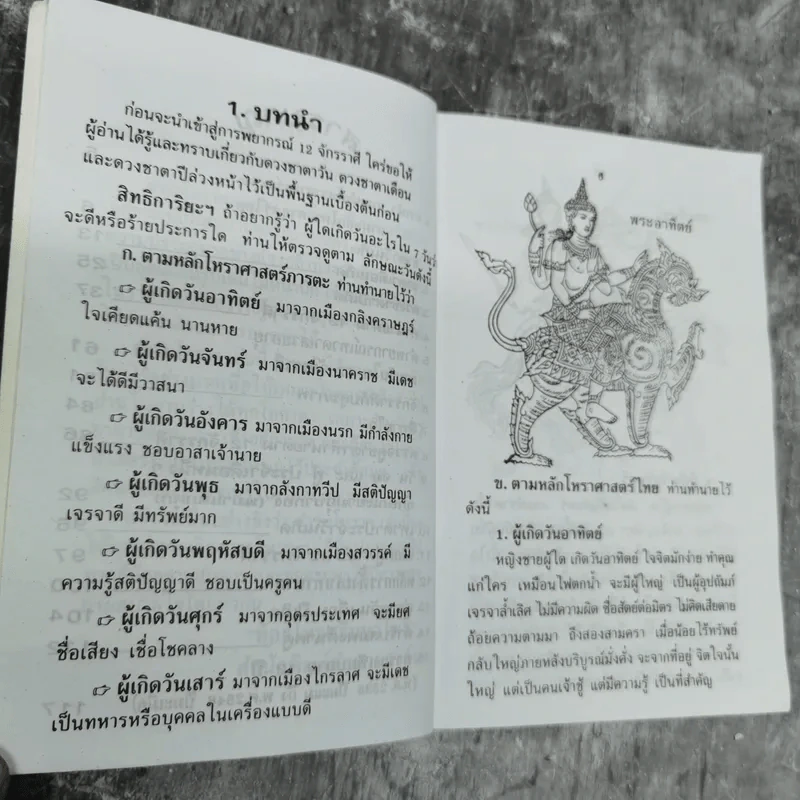 1. บทนำ
ก่อนจะนำเข้าสู่การพยากรณ์ 12 จักรราศี ใคร่ขอให้
ผู้อ่านได้รู้และทราบเกี่ยวกับดวงชาตาวัน ดวงชาตาเดือน
และดวงชาตาปีล่วงหน้าไว้เป็นพื้นฐานเบื้องต้นก่อน
สิทธิการิยะฯ ถ้าอยากรู้ว่า ผู้ใดเกิดวันอะไรใน 7 วันว่า
จะดีหรือร้ายประการใด ท่านให้ตรวจดูตาม ลักษณะวันดังนี้
ก. ตามหลักโหราศาสตร์ภารตะ ท่านทำนายไว้ว่า
ผู้เกิดวันอาทิตย์ มาจากเมืองกลิงคราษฎร์
ใจเคียดแค้น นานหาย
ผู้เกิดวันจันทร์ มาจากเมืองนาคราช มีเดช
จะได้ดีมีวาสนา
ผู้เกิดวันอังคาร มาจากเมืองนรก มีกำลังกาย
แข็งแรง ชอบอาสาเจ้านาย
ผู้เกิดวันพุธ มาจากลังกาทวีป มีสติปัญญา
เจรจาดี มีทรัพย์มาก
ผู้เกิดวันพฤหัสบดี มาจากเมืองสวรรค์ มี
ความรู้สติปัญญาดี ชอบเป็นครูคน
ผู้เกิดวันศุกร์ มาจากอุดรประเทศ จะมียศ
ชื่อเสียง เชื่อโชคลาง
ผู้เกิดวันเสาร์ มาจากเมืองไกรลาศ จะมีเดช
เป็นทหารหรือบุคคลในเครื่องแบบดี
พระอาทิตย์
ข. ตามหลักโหราศาสตร์ไทย ท่านทำนายไว้
ดังนี้
1. ผู้เกิดวันอาทิตย์
หญิงชายผู้ใด เกิดวันอาทิตย์ ใจจิตมักง่าย ทำคุณ
แก่ใคร เหมือนไฟตกน้ำ จะมีผู้ใหญ่ เป็นผู้อุปถัมภ์
เจรจาล้ำเลิศ ไม่มีความผิด ซื่อสัตย์ต่อมิตร ไม่คิดเสียดาย
ถ้อยความตามมา ถึงสองสามครา เมื่อน้อยไร้ทรัพย์
กลับใหญ่ภายหลังบริบูรณ์มั่งคั่ง จะจากที่อยู่ จิตใจนั้น
ใหญ่ แต่เป็นคนเจ้าชู้ แต่มีความรู้ เป็นที่สำคัญ